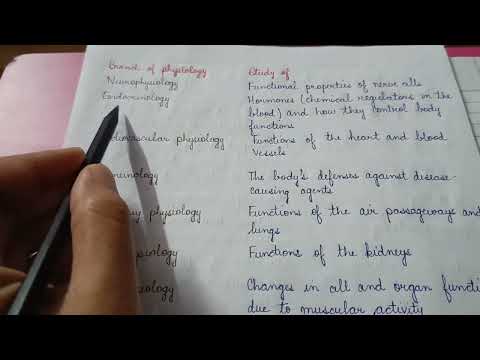 Branch of physiology Study of
Neurophysiology Functional properties of nerve cells
Endocrinology Hormones (chemical regulators in the
blood) and how they control body
functions
diovascular physiology Functions of the heart and blood
vessels
unology The body's defenses against disease-
causing agents
physiology Functions of the air passageways and
lungs
ysiology Functions of the kidneys
ology Changes in cell and organ functi
due to muscular activity